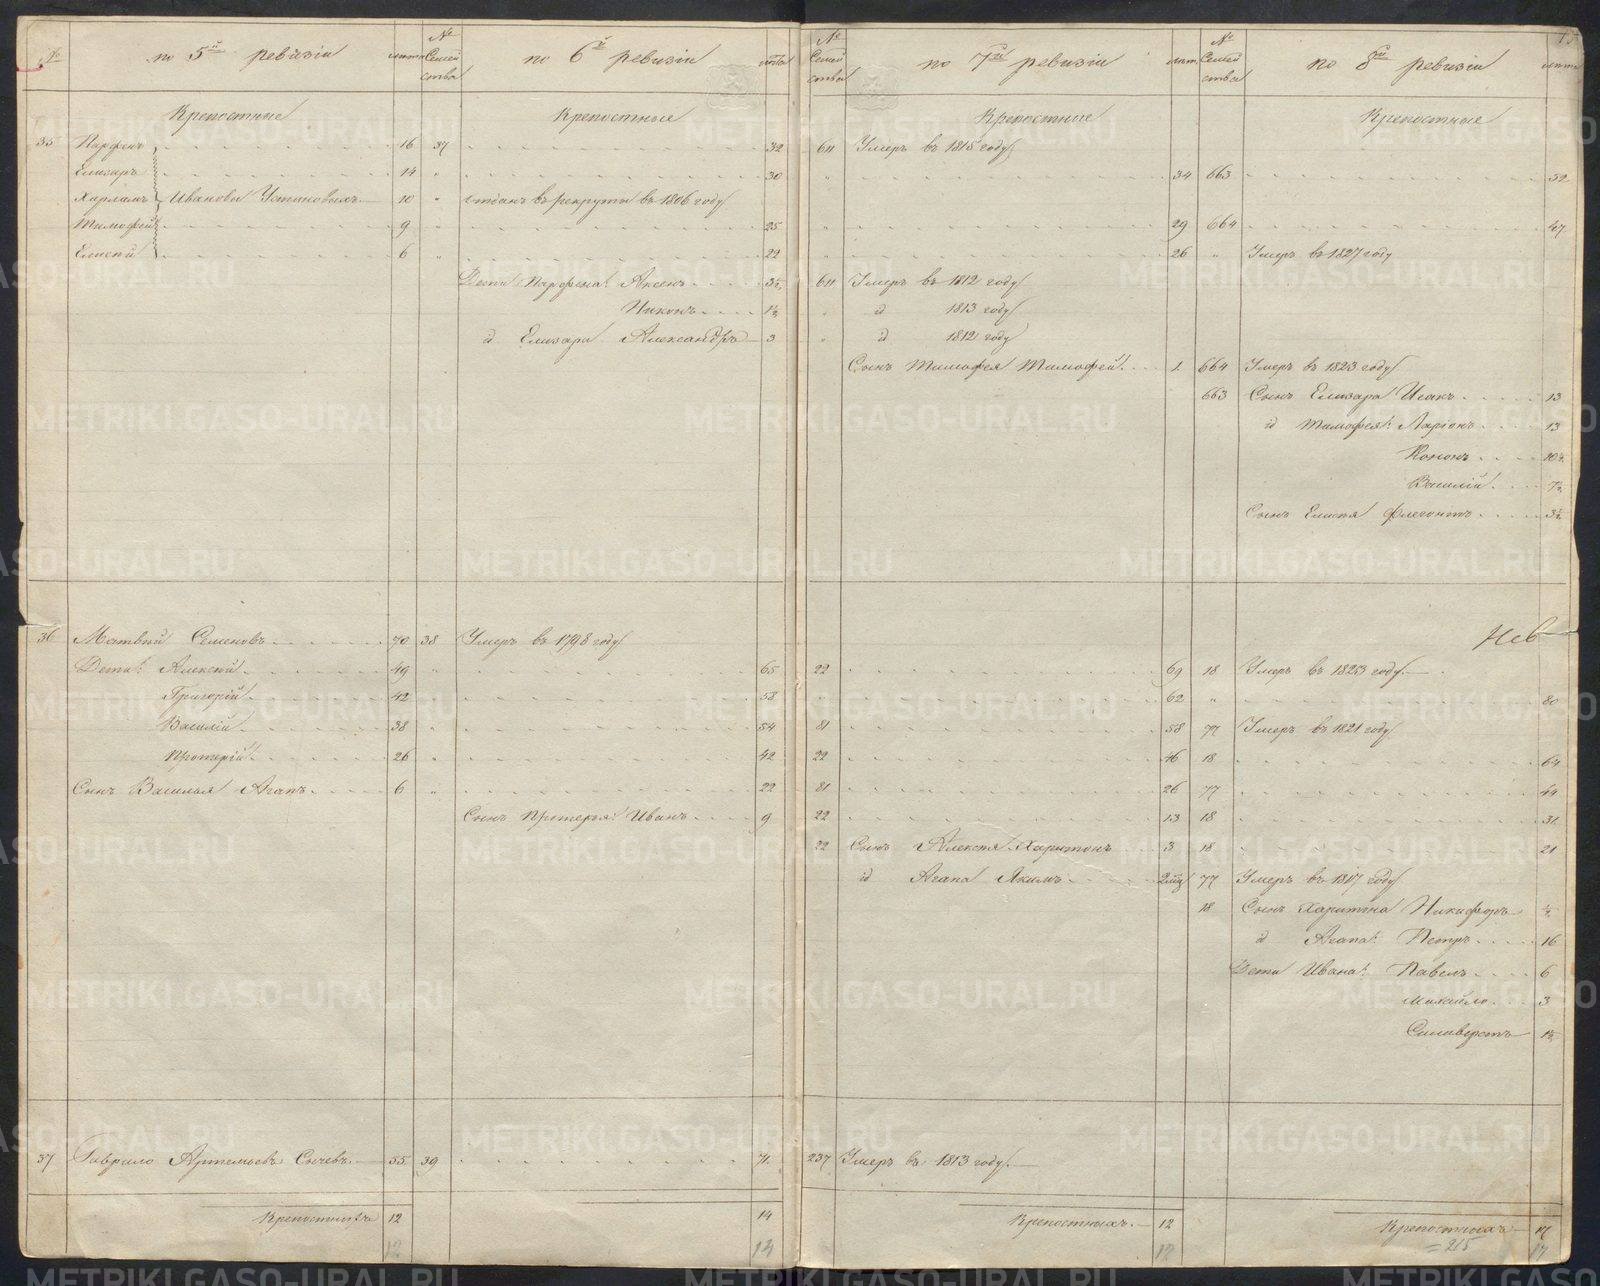 № по 5й ревизіи лѣта № Семей ства по 6й ревизіи лѣта № Семей ства по 7й ревизіи лѣт № Семей ства по 8й ревизіи лѣта
Крепостные Крепостные Крепостные Крепостные
35 Парфенъ 16 37 32 611 Умеръ въ 1815 году
Елизаръ 14 " 30 " 34 663 52
Харламъ Ивановы Устиновыхъ 10 " отданъ въ рекруты въ 1806 году
Тимофей 9 " 25 " 29 664 47
Елисей 6 " 22 " 26 " Умеръ въ 1827 году
Дети Парфена: Аксенъ 3½ 611 Умеръ въ 1812 году
Никонъ 1½ " id 1813 году
id Елизара Александръ 3 " id 1812 году
Сынъ Тимофея Тимофей 1 664 Умеръ въ 1823 году
663 Сынъ Елизара Исакъ 13
id Тимофея: Ларіонъ 13
Кононъ 10½
Василій 7½
Сынъ Елисея Флегонтъ 3½
Нев
36 Матвей Семеновъ 70 38 Умеръ въ 1798 году
Дети: Алексей 49 " 65 22 69 18 Умеръ въ 1823 году
Григорій 42 " 58 62 " 80
Василій 38 " 54 81 58 77 Умеръ въ 1821 году
Протерій 26 " 42 22 46 18 64
Сынъ Василья Агапъ 6 " 22 81 26 77 44
Сынъ Протерья: Иванъ 9 22 13 18 31
22 Сынъ Алексея Харитонъ 3 18 21
id Агапа Якимъ 2 мѣц 77 Умеръ въ 1817 году
18 Сынъ Харитона Никифоръ ½
id Агапа: Петръ 16
Дети Ивана: Павелъ 6
Михайло 3
Силиверстъ 1½
37 Гаврило Артемьевъ Сычевъ 55 39 71 237 Умеръ въ 1813 году
Крепостныхъ 12 14 Крепостныхъ 12 Крепостныхъ 17
12 14 12 = 215 17
METRIKI.GASO-URAL.RU